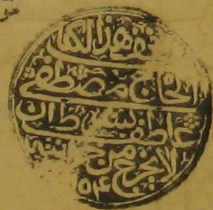 وقف هذا الكتاب
الحاج مصطفى
عاطف بشرط ان
لا يخرج من خزانته
٥٤